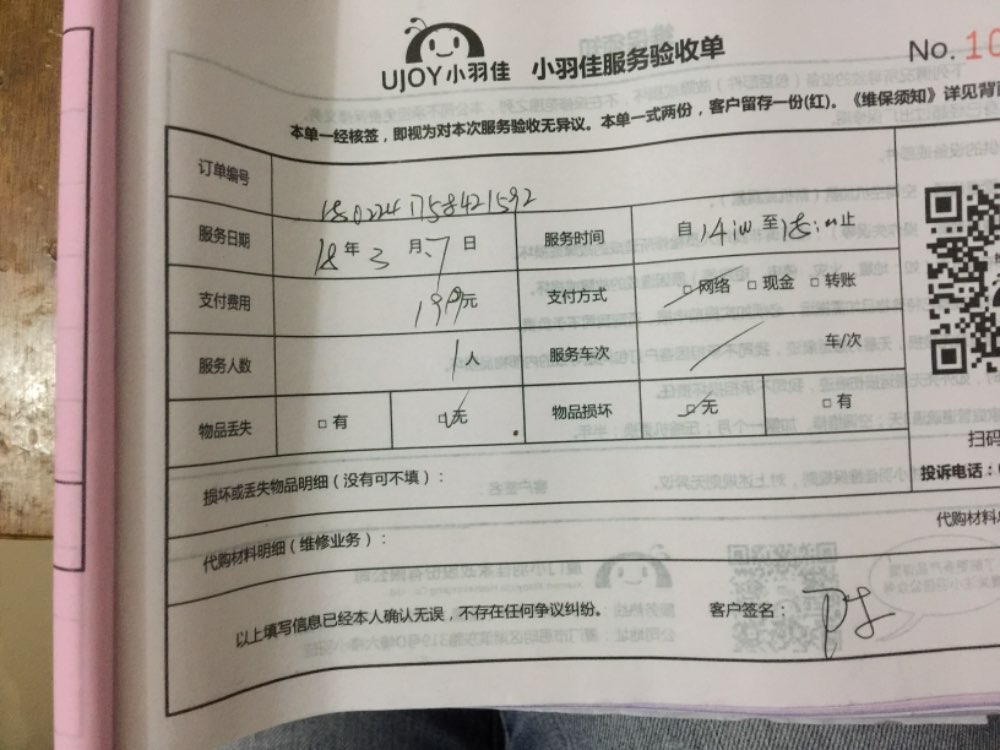 UJOY小羽佳 小羽佳服务验收单 No. 10
本单一经核签，即视为对本次服务验收无异议。本单一式两份，客户留存一份(红)。《维保须知》详见背
订单编号 1802241758421592
服务日期 18年3月7日 服务时间 自14:00至18:00止
支付费用 199元 支付方式 □网络 □现金 □转账
服务人数 1人 服务车次 车/次
物品丢失 □有 □无 物品损坏 □无 □有
扫码
损坏或丢失物品明细（没有可不填）： 投诉电话：
代购材料明细（维修业务）： 代购材料
以上填写信息已经本人确认无误，不存在任何争议纠纷。 客户签名：